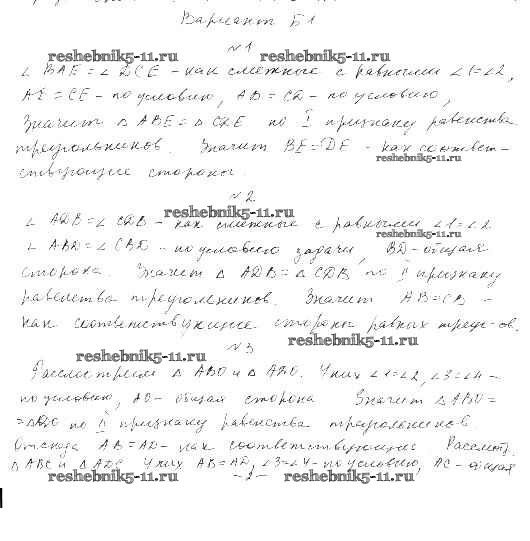 Вариант Б1
№1
reshebnik5-11.ru reshebnik5-11.ru
∠ BAE = ∠ DCE - как смежные с равными ∠1=∠2,
AE = CE - по условию, AB = CD - по условию,
Значит △ ABE = △ CDE по I признаку равенства
треугольников. Значит BE = DE - как соответ-
reshebnik5-11.ru
ствующие стороны.
№2
reshebnik5-11.ru
∠ ADB = ∠ CDB - как смежные с равными ∠1=∠2
reshebnik5-11.ru
∠ ABD = ∠ CBD - по условию задачи, BD - общая
сторона. Значит △ ADB = △ CDB по II признаку
равенства треугольников. Значит AB = CB -
как соответствующие стороны равных треуг-ов.
reshebnik5-11.ru
№3
reshebnik5-11.ru
Рассмотрим △ ABO и △ ADO. У них ∠1=∠2, ∠3=∠4 -
по условию, AO - общая сторона Значит △ABO =
= △ADO по II признаку равенства треугольников
Отсюда AB = AD - как соответствующие Рассмот.
△ ABC и △ ADC У них AB = AD, ∠3=∠4 - по условию, AC - общая
reshebnik5-11.ru - 2 - reshebnik5-11.ru